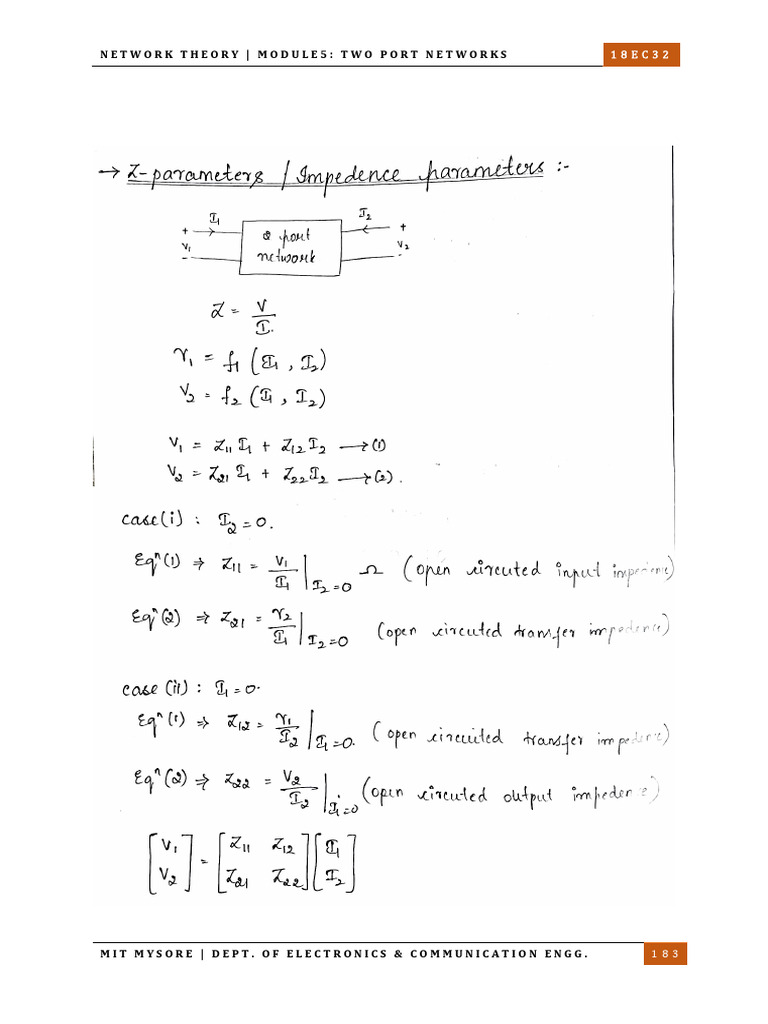 NETWORK THEORY | MODULE5: TWO PORT NETWORKS 18EC32
→ Z-parameters / Impedence parameters :-
I₁ I₂
+ 2 port +
V₁ network V₂
- -
Z = V/I.
V₁ = f₁ (I₁ , I₂)
V₂ = f₂ (I₁ , I₂)
V₁ = Z₁₁ I₁ + Z₁₂ I₂ ⟶ (1)
V₂ = Z₂₁ I₁ + Z₂₂ I₂ ⟶ (2).
case (i) : I₂ = 0.
Eqⁿ (1) ⇒ Z₁₁ = V₁/I₁ |I₂=0 Ω (open circuited input impedence)
Eqⁿ (2) ⇒ Z₂₁ = V₂/I₁ |I₂=0 (open circuited transfer impedence)
case (ii) : I₁ = 0.
Eqⁿ (1) ⇒ Z₁₂ = V₁/I₂ |I₁=0. (open circuited transfer impedence)
Eqⁿ (2) ⇒ Z₂₂ = V₂/I₂ |I₁=0 (open circuited output impedence)
[V₁] = [Z₁₁ Z₁₂] [I₁]
[V₂] [Z₂₁ Z₂₂] [I₂]
MIT MYSORE | DEPT. OF ELECTRONICS & COMMUNICATION ENGG. 183